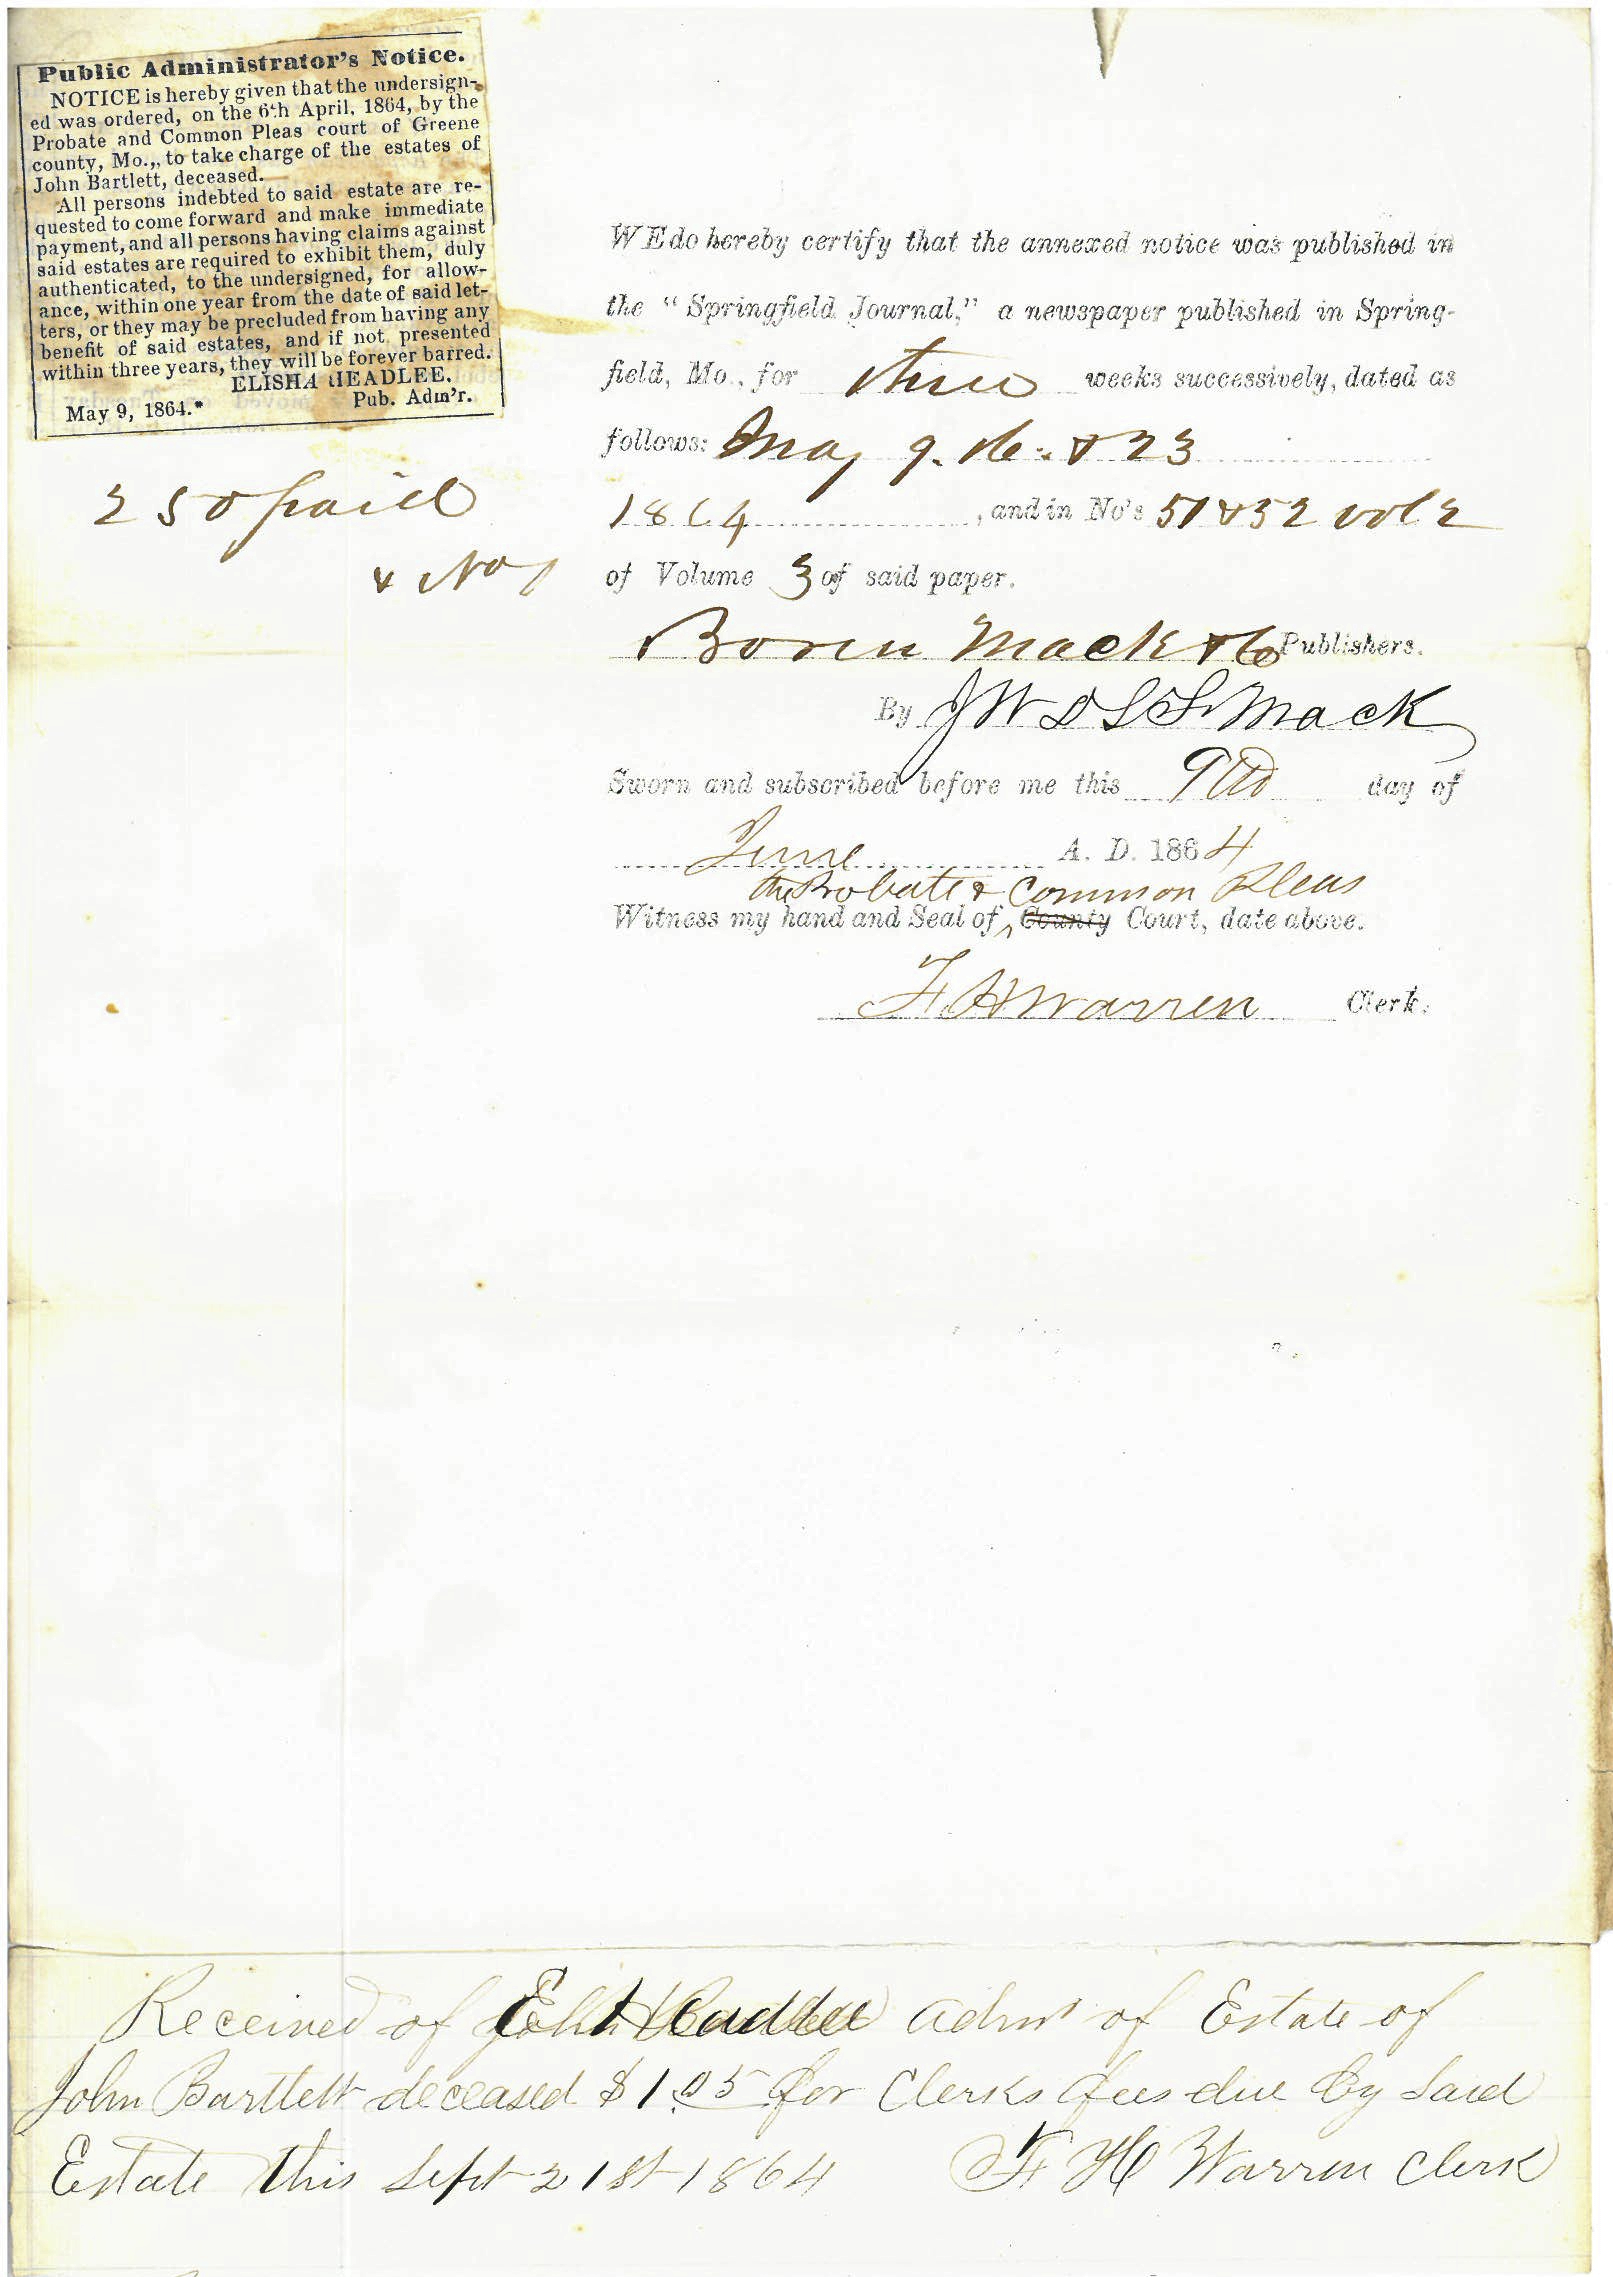 Public Administrator's Notice.
NOTICE is hereby given that the undersign-
ed was ordered, on the 6th April, 1864, by the
Probate and Common Pleas court of Greene
county, Mo.,, to take charge of the estates of
John Bartlett, deceased.
All persons indebted to said estate are re-
quested to come forward and make immediate
payment, and all persons having claims against
said estates are required to exhibit them, duly
authenticated, to the undersigned, for allow-
ance, within one year from the date of said let-
ters, or they may be precluded from having any
benefit of said estates, and if not presented
within three years, they will be forever barred.
ELISHA HEADLEE.
May 9, 1864.* Pub. Adm'r.
2 50 paid
WE do hereby certify that the annexed notice was published in
the "Springfield Journal," a newspaper published in Spring-
field, Mo., for three weeks successively, dated as
follows: May 9. 16. & 23
1864, and in No's 51 & 52 vol 2
& No 1 of Volume 3 of said paper.
Boren Mack & Co Publishers.
By J W D L F Mack
Sworn and subscribed before me this 9th day of
June A. D. 1864
the Probate & Common Pleas
Witness my hand and Seal of County Court, date above.
F. H Warren Clerk.
Received of E Headlee admr of Estate of
John Bartlett deceased $1.05 for Clerks fees due by Said
Estate this Sept 21st 1864 F H Warren Clerk